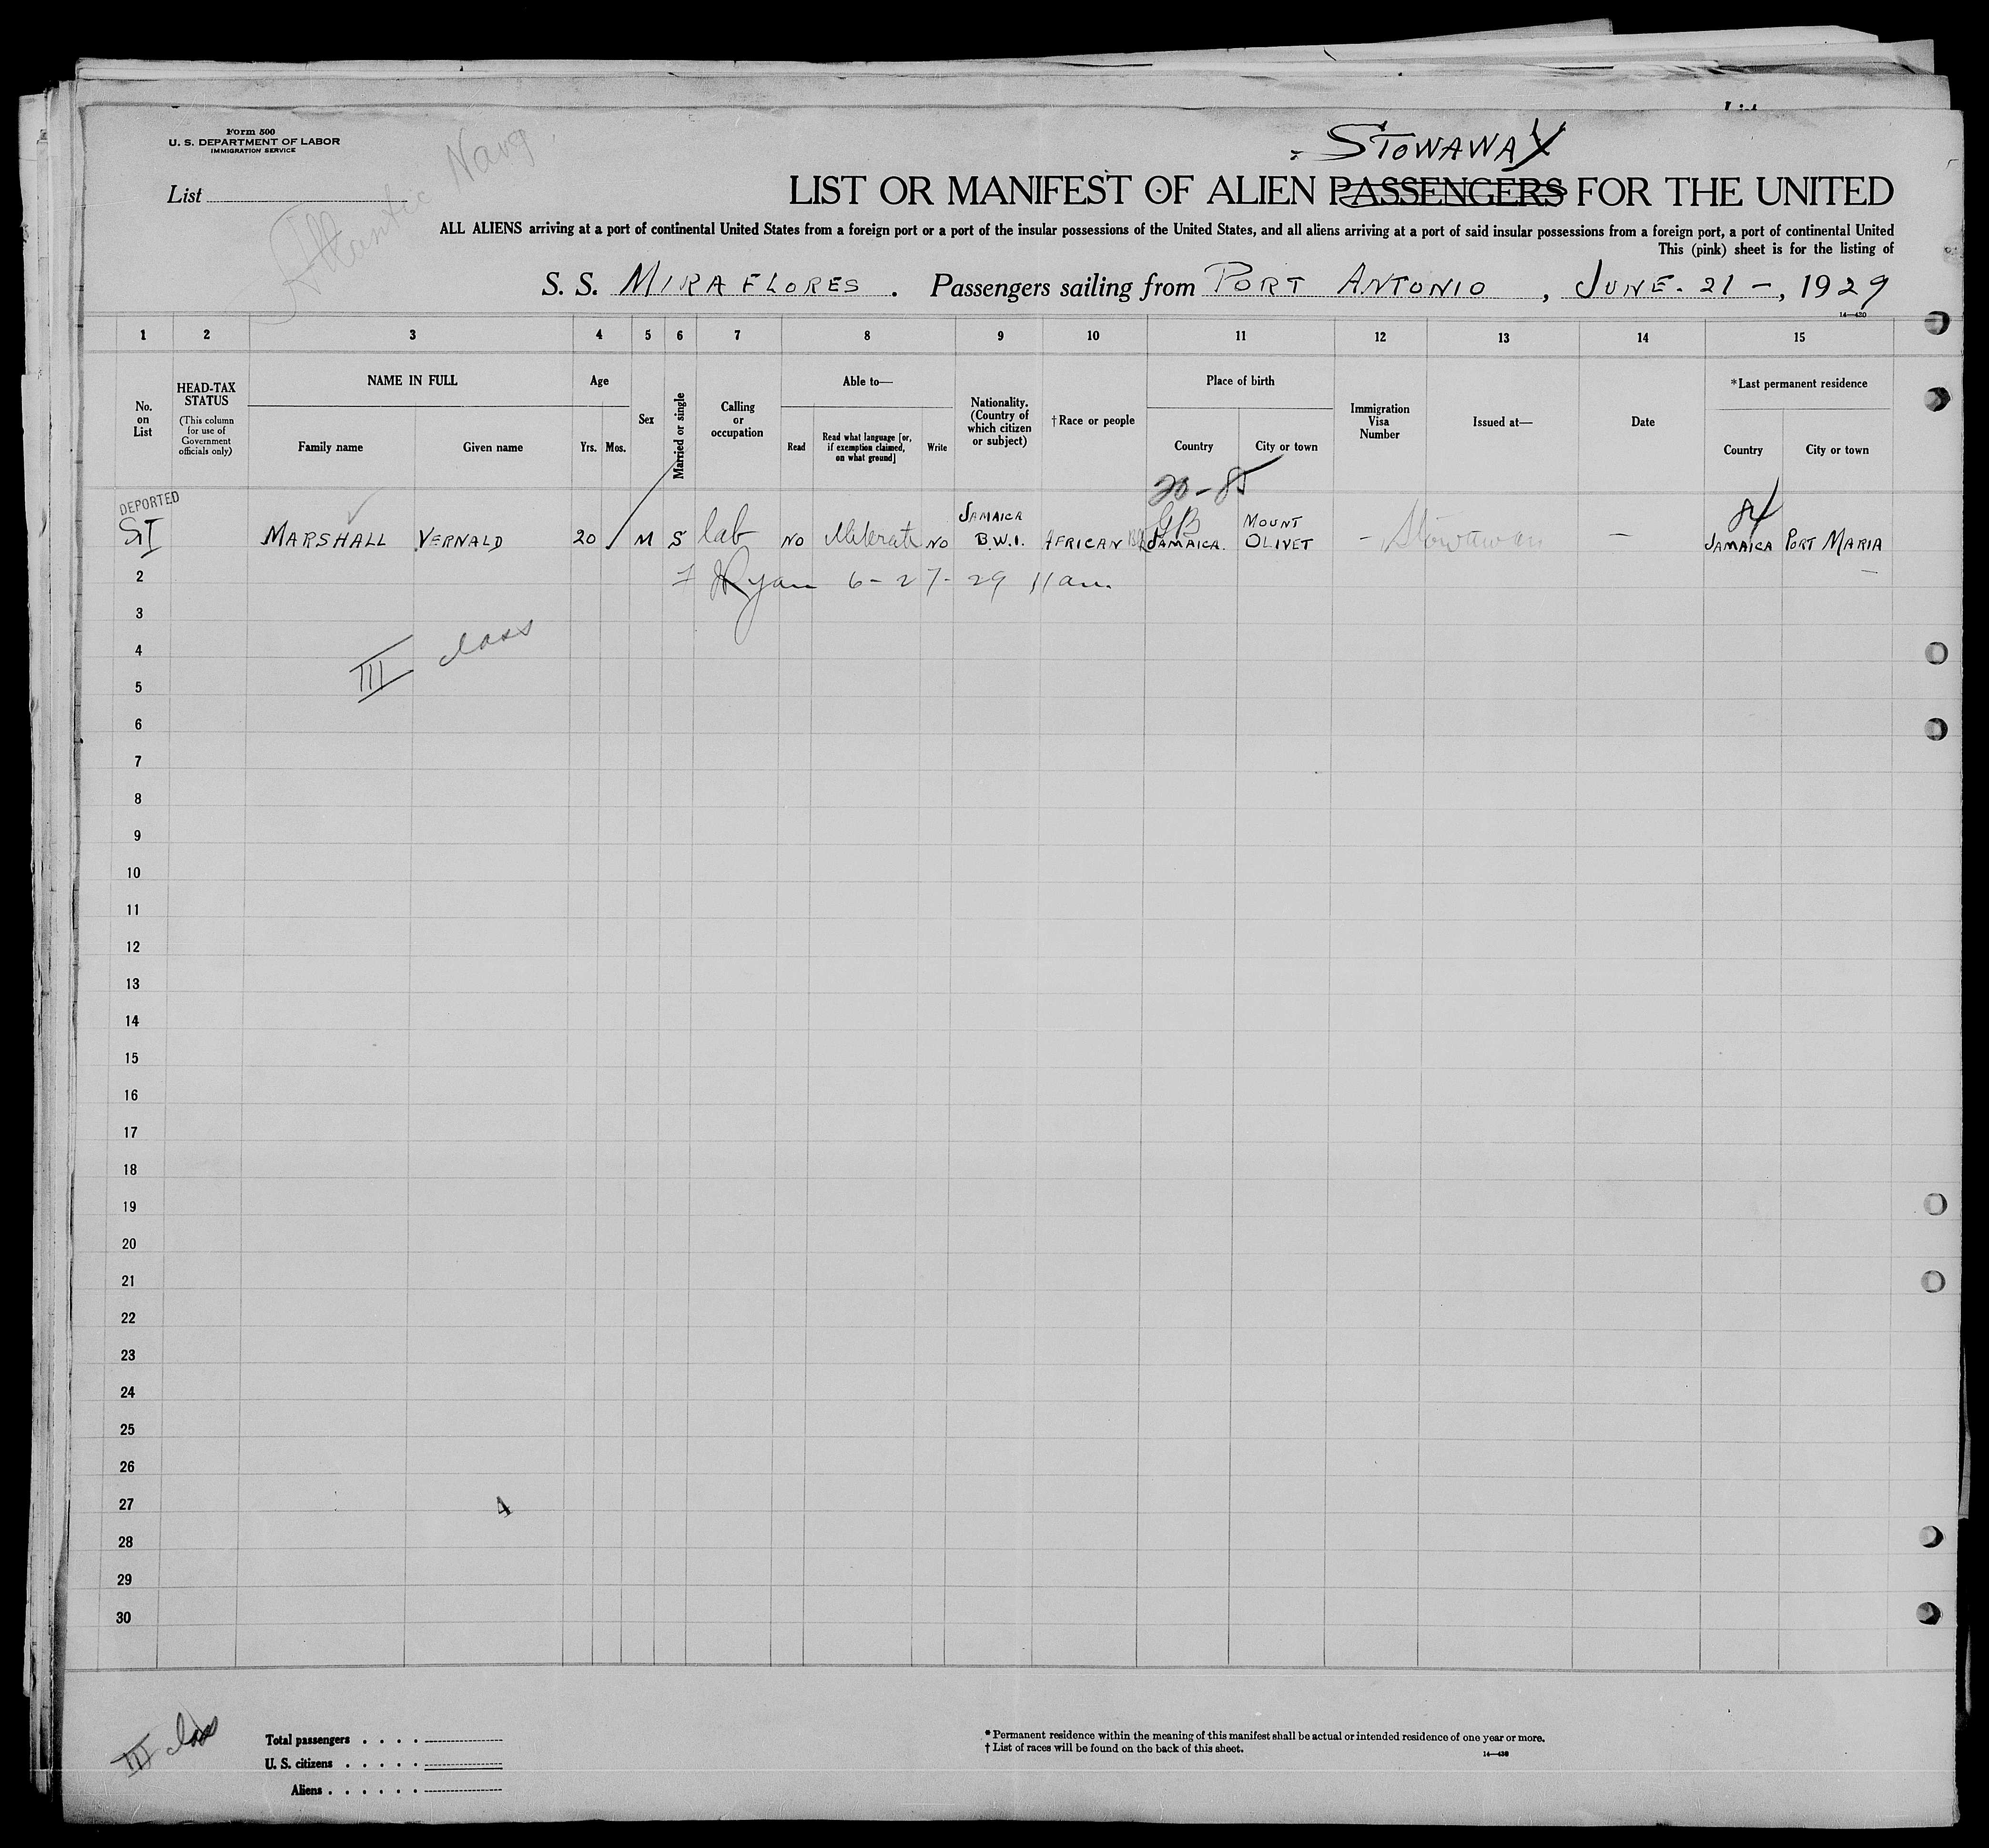 Form 500
U. S. DEPARTMENT OF LABOR
IMMIGRATION SERVICE
List
Atlantic Navg
STOWAWAY
LIST OR MANIFEST OF ALIEN PASSENGERS FOR THE UNITED
ALL ALIENS arriving at a port of continental United States from a foreign port or a port of the insular possessions of the United States, and all aliens arriving at a port of said insular possessions from a foreign port, a port of continental United
This (pink) sheet is for the listing of
S. S. MIRAFLORES. Passengers sailing from PORT ANTONIO, JUNE. 21 -, 1929
14—430
1 2 3 4 5 6 7 8 9 10 11 12 13 14 15
No. on List
HEAD-TAX STATUS
(This column for use of Government officials only)
NAME IN FULL
Family name Given name
Age
Yrs. Mos.
Sex
Married or single
Calling or occupation
Able to—
Read
Read what language [or, if exemption claimed, on what ground]
Write
Nationality. (Country of which citizen or subject)
†Race or people
Place of birth
Country City or town
Immigration Visa Number
Issued at—
Date
*Last permanent residence
Country City or town
DEPORTED
20-85
MARSHALL VERNALD 20 M S lab NO Illiterate NO JAMAICA B.W.I. AFRICAN GB JAMAICA. MOUNT OLIVET - Stowaway - JAMAICA PORT MARIA
2 Ryan 6-27-29 11am.
3
III class
4
5
6
7
8
9
10
11
12
13
14
15
16
17
18
19
20
21
22
23
24
25
26
27 4
28
29
30
III class
Total passengers
U. S. citizens
Aliens
* Permanent residence within the meaning of this manifest shall be actual or intended residence of one year or more.
† List of races will be found on the back of this sheet.
14—430